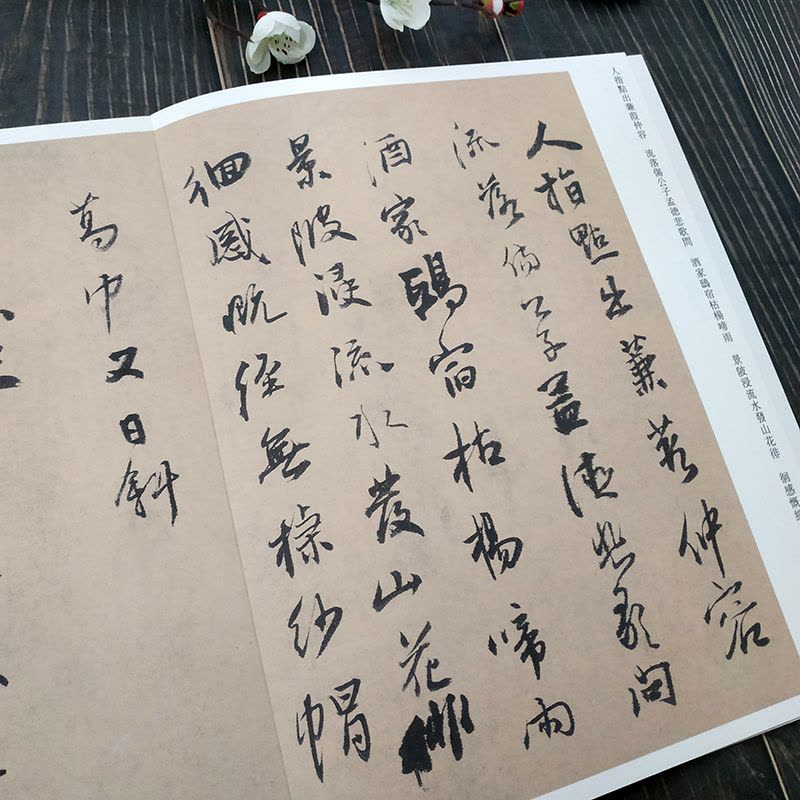 人指點出蒹葭仲容　流落傷公子孟德悲歌問　酒家鴟宿枯楊啼雨　景陂浸流水發山花徘　徊感慨
人指點出蒹葭仲容
流落傷公子孟德悲歌問
酒家鴟宿枯楊啼雨
景陂浸流水發山花徘
徊感慨經無紗帽
葛巾又日斜